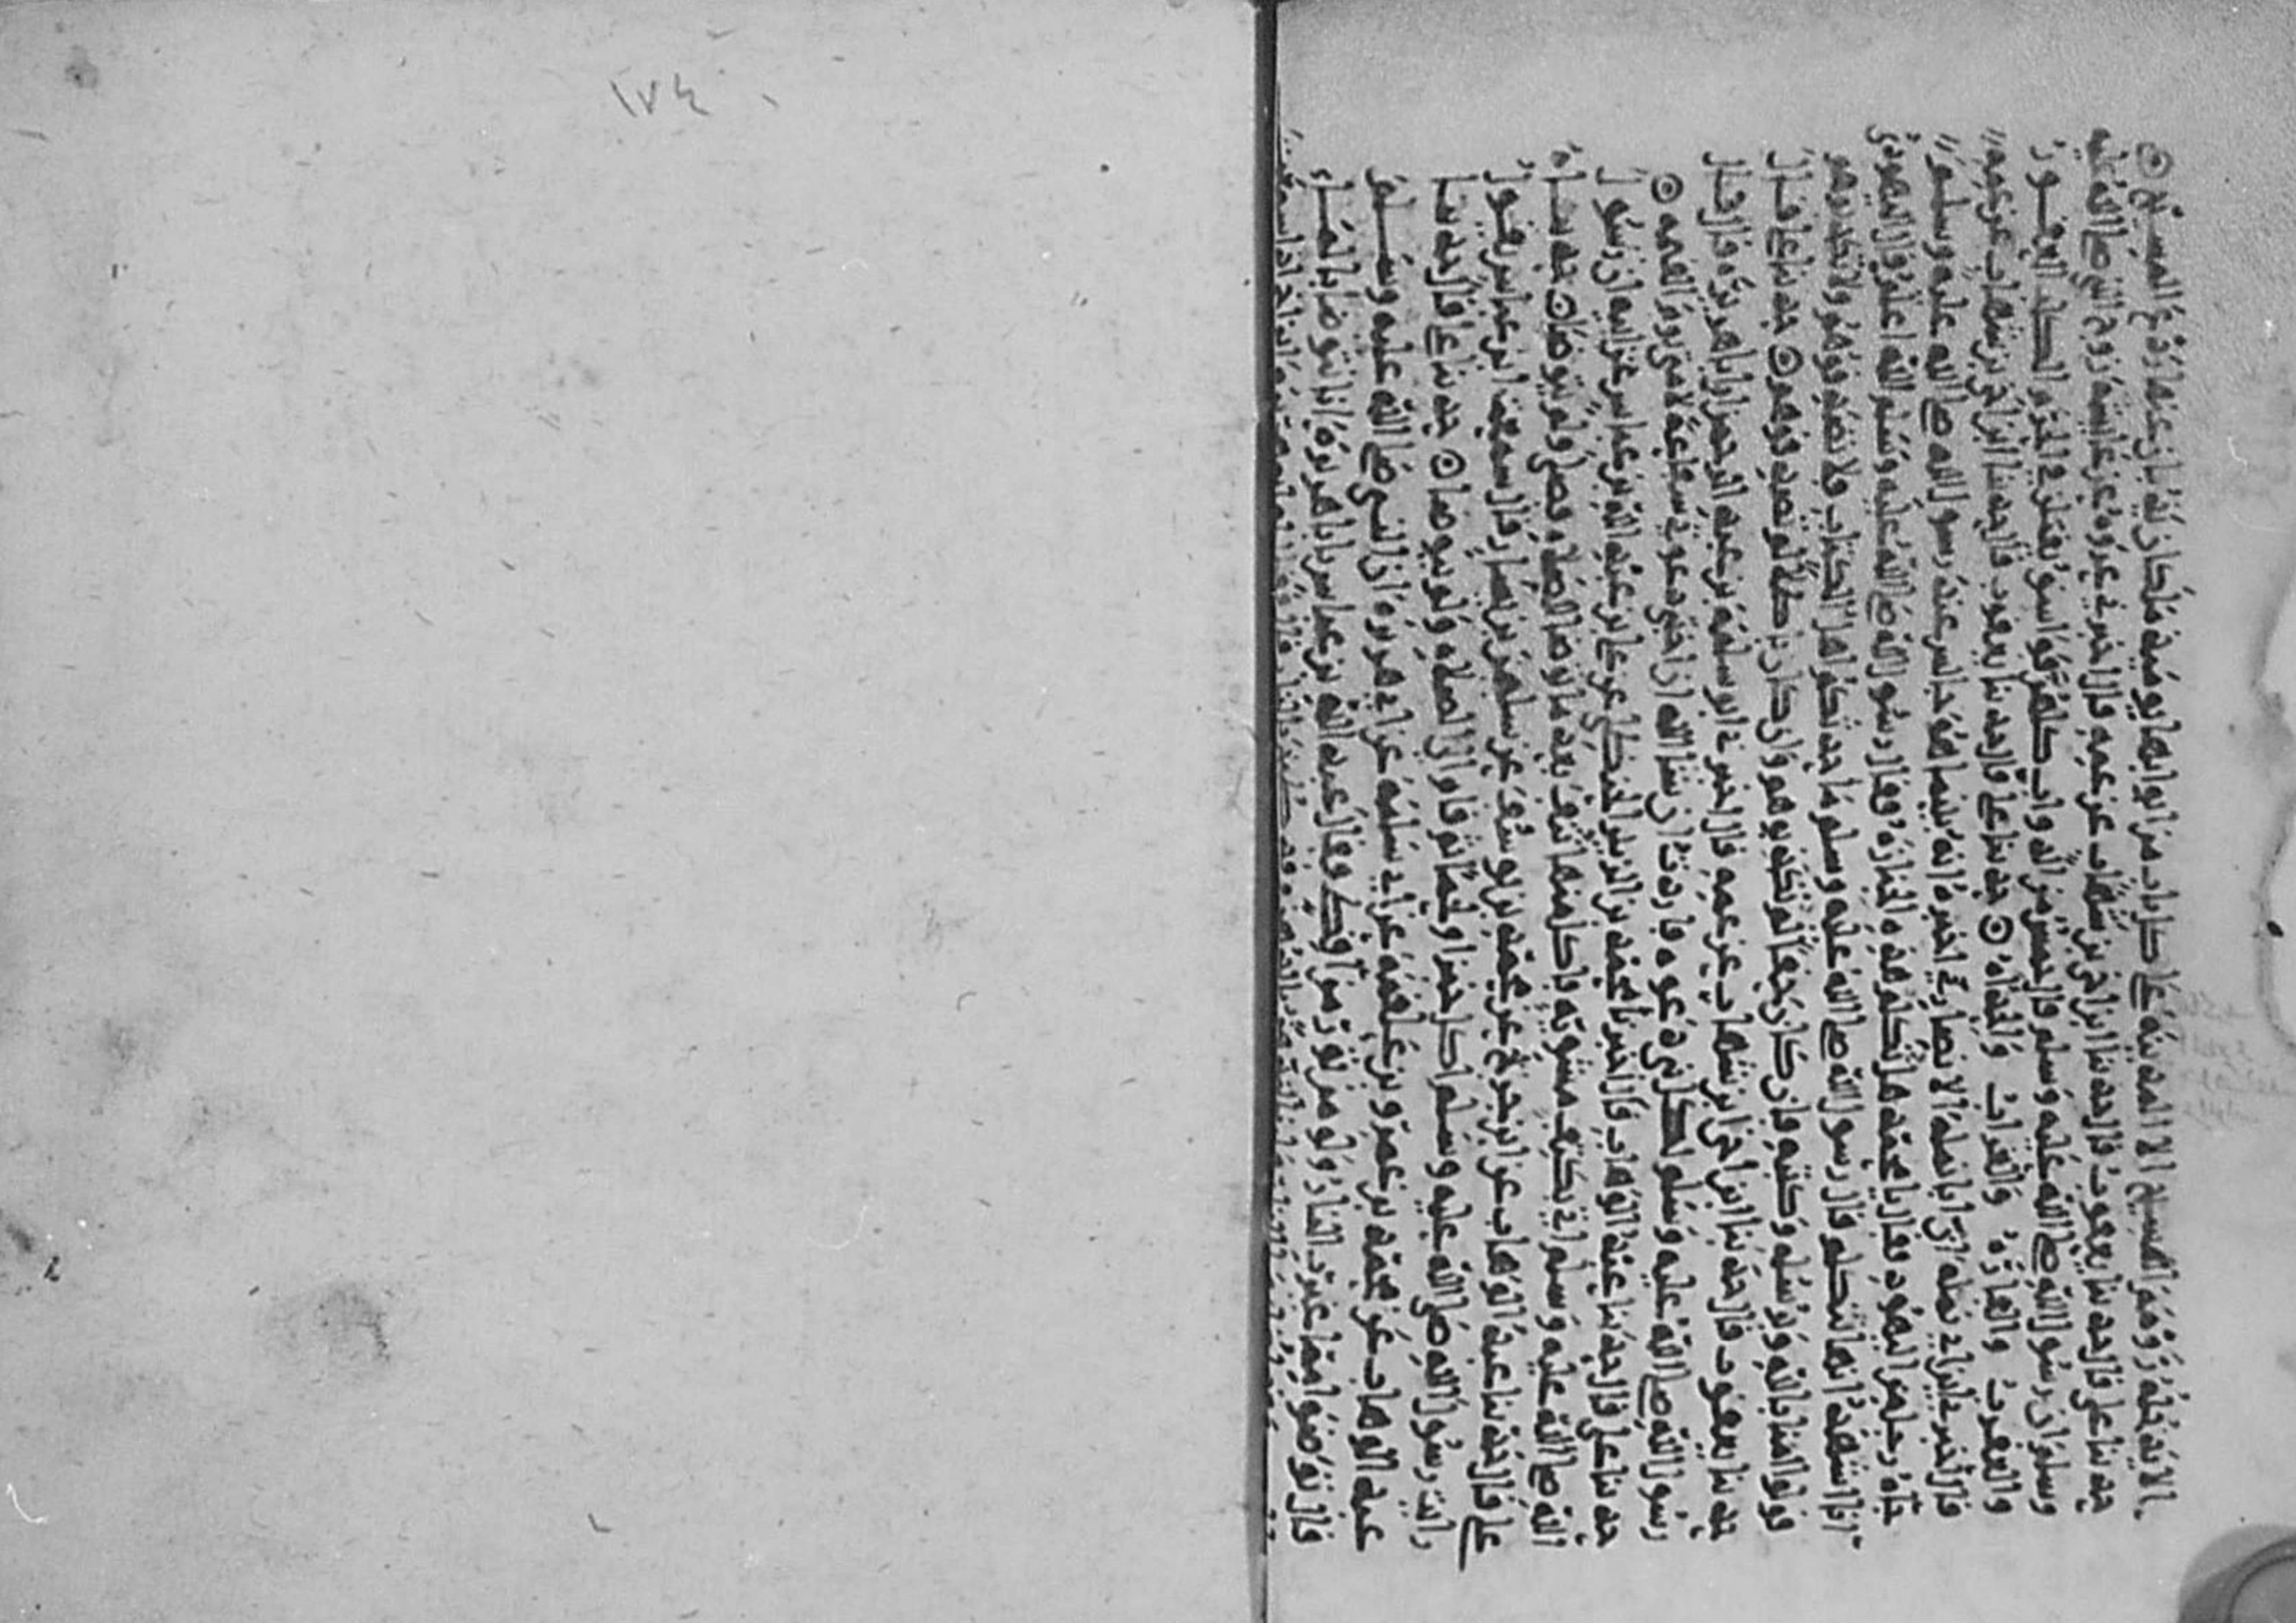 ١٧٤
الا يدخله رعب المسيح الا المدينة على كل باب من ابوابها يومئذ ملكان يذبان عنها رعب المسيح ⊙
حدثنا علي قال حدثنا يعقوب قال حدثنا ابن اخي بن شهاب عن عمه قال اخبرني عروة عن عايشة زوج النبي صلى الله عليه
وسلم ان رسول الله صلى الله عليه وسلم قال خمس من الدواب كلهن فواسق يقتلن في الحرم الكلب العقور
والعقرب والفارة والغراب والحداة ⊙ حدثنا علي قال حدثنا يعقوب قال حدثنا ابن اخي بن شهاب عن عمه
قال اخبرني ابن ابي نملة ان ابا نملة الانصاري اخبره انه بينما هو جالس عند رسول الله صلى الله عليه وسلم
جاه رجل من اليهود فقال يا محمد هل تكلم هذه الجنازة فقال رسول الله صلى الله عليه وسلم الله اعلم قال اليهودي
انا اشهد انها تتكلم قال رسول الله صلى الله عليه وسلم ما حدثكم اهل الكتاب فلا تصدقوهم ولا تكذبوهم
قولوا امنا بالله ورسله وكتبه فان كان حقا لم تكذبوهم وان كان باطلا لم تصدقوهم ⊙ حدثنا علي قال
حدثنا يعقوب قال حدثنا ابن اخي ابن شهاب عن عمه قال اخبرني ابو سلمة بن عبد الرحمن ان ابا هريرة قال قال
رسول الله صلى الله عليه وسلم لكل نبي دعوة فاردت ان شا الله ان اختبي دعوتي شفاعة لامتي يوم القيمة ⊙
حدثنا علي قال حدثنا عبد الوهاب قال اخبرنا محمد بن الزبير الحنظلي عن علي بن عبد الله بن عباس عن ابيه ان رسول
الله صلى الله عليه وسلم اتي بكتف مشوية فاكل منها نتفا بعد ما توضا للصلاه فصلى ولم يتوضا ⊙ حدثناه
علي قال حدثنا عبد الوهاب عن ابن جريج عن محمد بن يوسف عن سليمن بن يسار قال سمعت ابن عباس يقول
رايت رسول الله صلى الله عليه وسلم اكل خبزا ولحما ثم قام الى الصلاه ولم يتوضا ⊙ حدثنا علي قال حدثنا
عبد الوهاب عن محمد بن عمرو بن علقمة عن ابي سلمة عن ابي هريرة ان النبي صلى الله عليه وسلم
قال توضوا مما غيرت النار ولو من ثور من اقط وقال عبد الله بن عباس يا ابا هريرة انا نتوضا بالماء